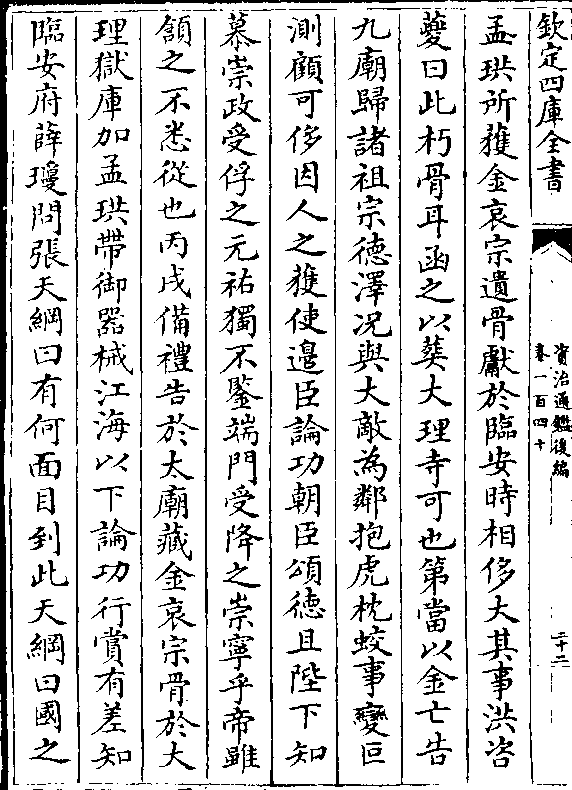 欽定四庫全書
資治通鑑後編
卷一百四十
二十二
孟珙所獲金哀宗遺骨獻於臨安時相侈大其事洪咨
夔曰此朽骨耳函之以葬大理寺可也第當以金亡告
九廟歸諸祖宗德澤况與大敵為鄰抱虎枕蛟事變叵
測顧可侈因人之獲使邊臣論功朝臣頌德且陛下知
慕崇政受俘之元祐獨不鍳端門受降之崇寧乎帝雖
頷之不悉從也丙戌備禮告於太廟藏金哀宗骨於大
理獄庫加孟珙帶御器械江海以下論功行賞有差知
臨安府薛瓊問張天綱曰有何面目到此天綱曰國之